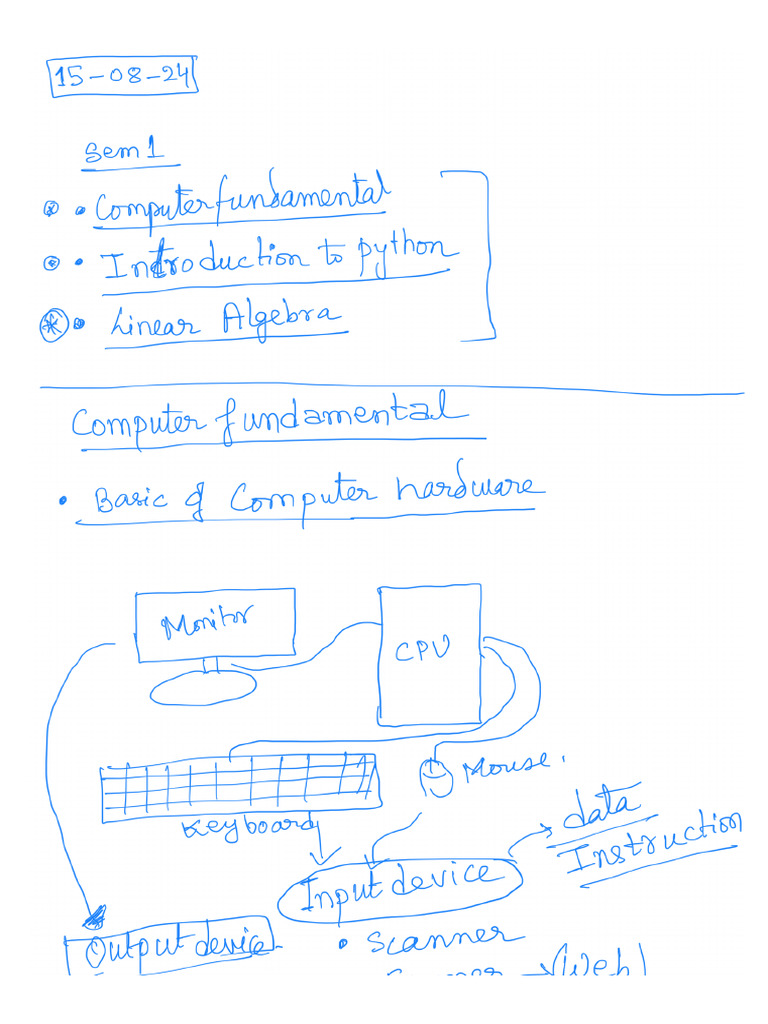 15-08-24
Sem 1
• Computer fundamental
• Introduction to python
• Linear Algebra
Computer fundamental
• Basic of Computer hardware
Monitor
CPU
Mouse.
Keyboard
data
Instruction
Input device
Output device
• Scanner